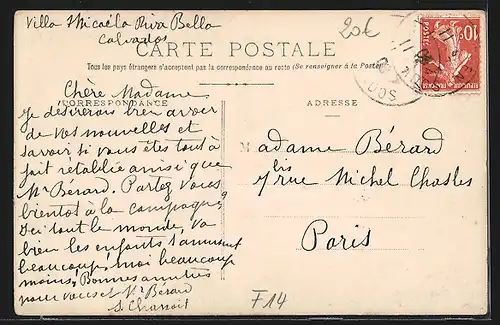 Villa Micaëla Riva Bella
Calvados
20€
CARTE POSTALE
Tous les pays étrangers n'acceptent pas la correspondance au recto (Se renseigner à la Poste)
CORRESPONDANCE
ADRESSE
Chère Madame
Je désirerais bien avoir
de vos nouvelles et
savoir si vous êtes tout à
fait rétablie ainsi que
Mr Bérard. Partez vous
bientôt à la campagne?
Ici tout le monde va
bien les enfants s'amusent
beaucoup, moi beaucoup
moins, Bonnes amitiés
pour vous et Mr Bérard
Madame Bérard
7 bis rue Michel Chasles
Paris
F14
10
POSTES
REPUBLIQUE FRANÇAISE